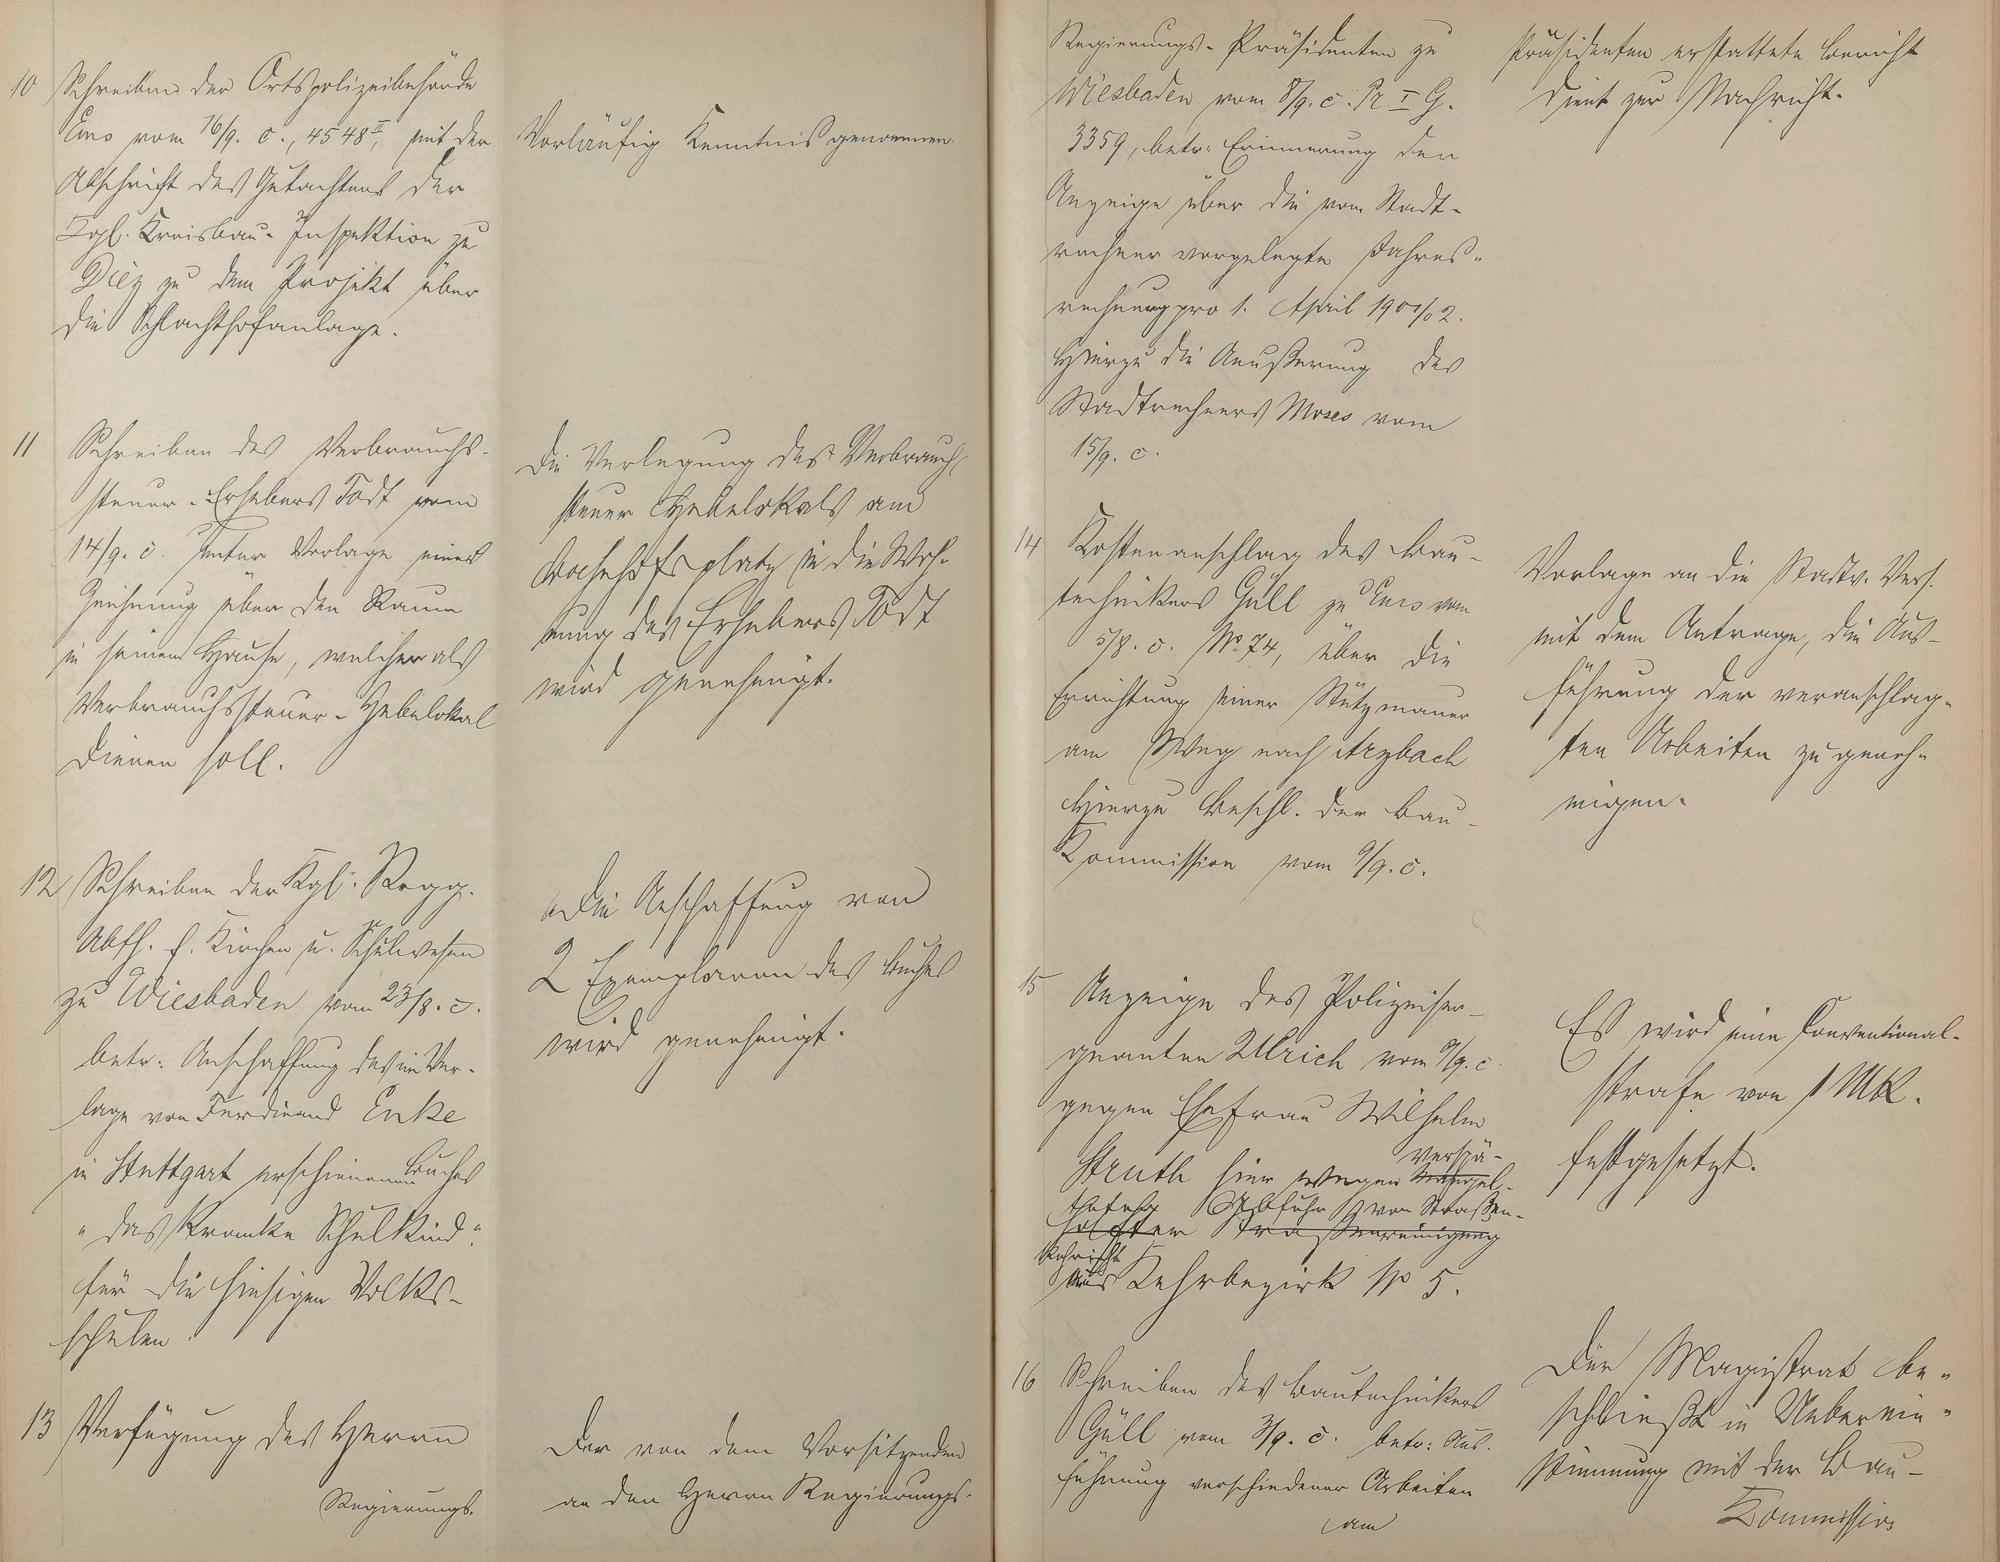 10 Schreiben der Ortspolizeibehörde
Ems vom 16/9. c., 4548 I, mit der
Abschrift des Gutachtens der
Kgl. Kreisbau-Inspektion zu
Diez zu dem Projekt über
die Schlachthofanlage.
Vorläufig Kenntniß genommen.
11 Schreiben des Verbrauchs-
steuer-Erhebers Todt vom
14/9. c. unter Vorlage einer
Zeichnung über den Raum
in seinem Hause, welcher als
Verbrauchssteuer-Hebelokal
dienen soll.
Die Verlegung des Verbrauch-
steuer Hebelokals am
Bahnhofsplatz in die Woh-
nung des Erhebers Todt
wird genehmigt.
12 Schreiben der Kgl. Regg.
Abth. f. Kirchen u. Schulwesen
zu Wiesbaden vom 23/8. c.
betr: Anschaffung des im Ver-
lage von Ferdinand Enke
in Stuttgart erschienenen Buches
"das kranke Schulkind"
für die hiesigen Volks-
schulen.
Die Anschaffung von
2 Exemplaren des Buches
wird genehmigt.
13 Verfügung des Herrn
Regierungs-
Der von dem Vorsitzenden
an den Herrn Regierungs-
Regierungs-Präsidenten zu
Wiesbaden vom 8/9. c. Pr I G.
3359, betr: Erinnerung den
Anzeige über die vom Stadt-
rechner vorgelegte Jahres-
rechnung pro 1. April 1901/02.
Hierzu die Aeußerung des
Stadtrechners Moses vom
15/9. c.
Präsidenten erstattete Bericht
dient zur Nachricht.
14 Kostenanschlag des Bau-
technikers Güll zu Ems vom
5/8. c. No 74, über die
Errichtung einer Stützmauer
am Weg nach Arzbach
Hierzu Beschl. der Bau-
Kommission vom 9/9. c.
Vorlage an die Stadtv. Vers.
mit dem Antrage, die Aus-
führung der veranschlag-
ten Arbeiten zu geneh-
migen.
15 Anzeige des Polizeiser-
geanten Ulrich vom 9/9. c.
gegen Ehefrau Wilhelm
verspä-
Struth hier wegen mangel-
theter Abfuhr von Straßen-
hafter Straßenreinigung
kehricht
aus Kehrbezirk No 5.
Es wird eine Conventional-
strafe von 1 Mk.
festgesetzt.
16 Schreiben des Bautechnikers
Güll vom 3/9. c. betr: Aus-
führung verschiedener Arbeiten
am
Der Magistrat be-
schließt in Ueberein-
stimmung mit der Bau-
Kommission